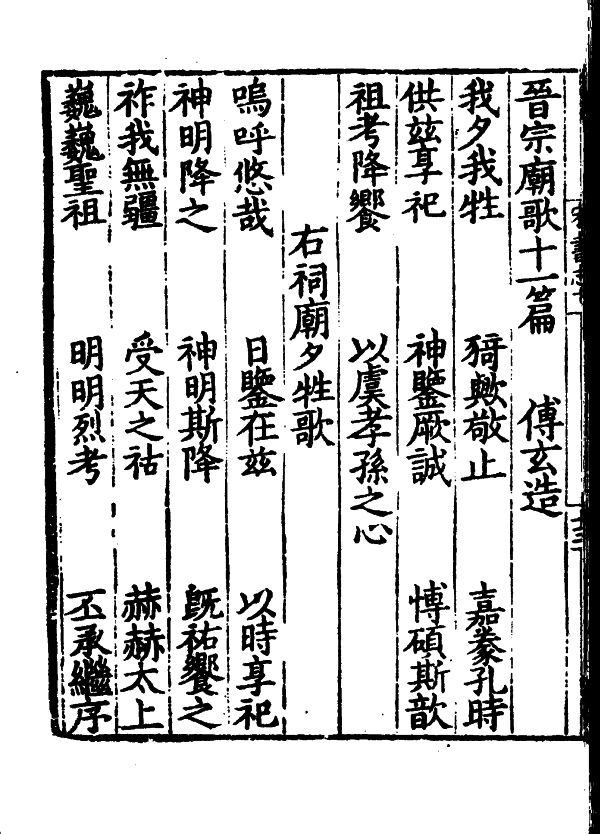 晉宗廟歌十一篇　傅玄造
我夕我牲　猗歟敬止　嘉豢孔時
供兹享祀　神鑒厥誠　愽碩斯歆
祖考降饗　以虞孝孫之心
右祠廟夕牲歌
嗚呼悠哉　日鑒在兹　以時享祀
神明降之　神明斯降　旣祐饗之
祚我無疆　受天之祜　赫赫太上
巍巍聖祖　明明烈考　丕承繼序